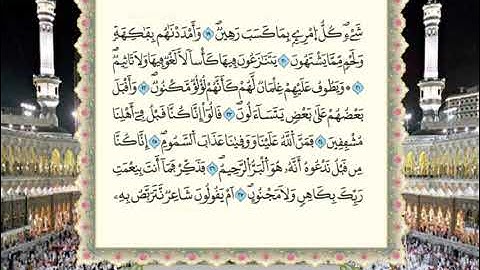 شَيْءٖۖ كُلُّ اُمْرِيِٕۢ بِمَا كَسَبَ رَهِينٞۖ ١٩ وَأَمْدَدْنَٰهُم بِفَٰكِهَةٖ
وَلَحْمٖ مِّمَّا يَشْتَهُونَۖ ٢٠ يَتَنَٰزَعُونَ فِيهَا كَأْساٗ لَّا لَغْوٞ فِيهَا وَلَا تَأْثِيمٞۖ
٢١ ۞ وَيَطُوفُ عَلَيْهِمْ غِلْمَانٞ لَّهُمْ كَأَنَّهُمْ لُؤْلُؤٞ مَّكْنُونٞۖ ٢٢ وَأَقْبَلَ
بَعْضُهُمْ عَلَىٰ بَعْضٖ يَتَسَآءَلُونَۖ ٢٣ قَالُوٓاْ إِنَّا كُنَّا قَبْلُ فِےٓ أَهْلِنَا
مُشْفِقِينَ ٢٤ فَمَنَّ اَللَّهُ عَلَيْنَا وَوَقَيٰنَا عَذَابَ اَلسَّمُومِۖ ٢٥ إِنَّا كُنَّا
مِن قَبْلُ نَدْعُوهُ أَنَّهُۥ هُوَ اَلْبَرُّ اُلرَّحِيمُۖ ٢٦ فَذَكِّرْ فَمَآ أَنتَ بِنِعْمَتِ
رَبِّكَ بِكَاهِنٖ وَلَا مَجْنُونٍۖ ٢٧ اَمْ يَقُولُونَ شَاعِرٞ نَّتَرَبَّصُ بِهِۦ